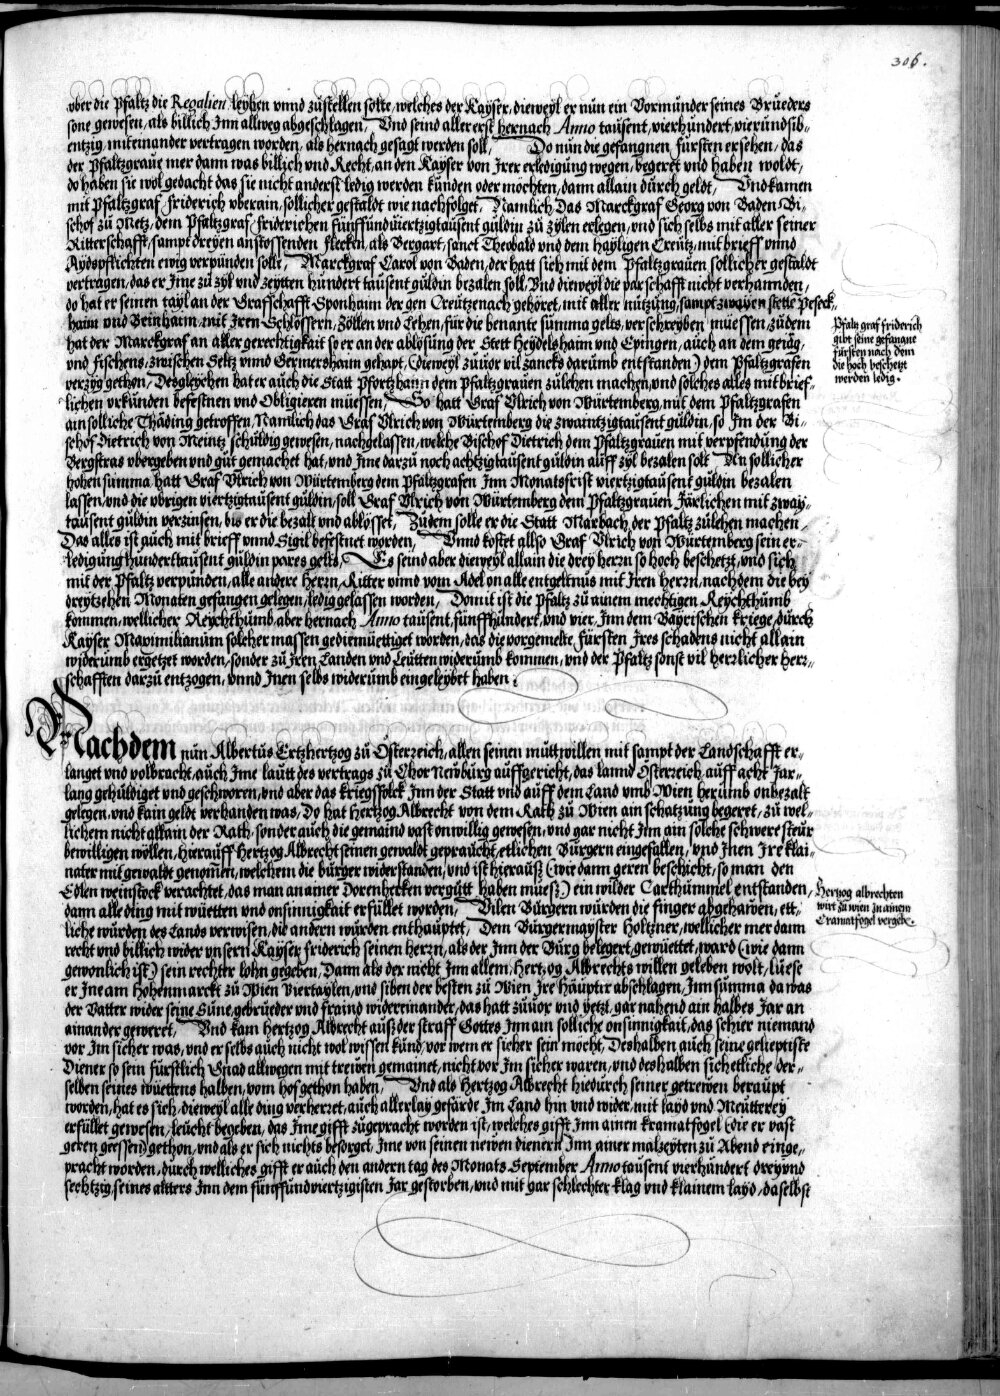 306.
vber die Pfaltz die Regalien leyhen vnnd zustellen solte, welches der Kayser, dieweyl er nun ein Vormunder seines Brueders
sone gewesen, als billich Jnn allweg abgeschlagen, Vnd seind allererst hernach Anno tausent, vierhundert, vierundsib-
entzig, miteinander vertragen worden, als hernach gesagt werden soll, Do nun die gefangnen fürsten ersehen, das
der Pfaltzgraue mer dann was billich vnd Recht, an den Kayser von Jrer erledigung wegen, begeret vnd haben woldt,
do haben sie wol gedacht das sie nicht anderst ledig werden kunden oder möchten, dann allain durch geldt, Vnd kamen
mit Pfaltzgraf friderich vberain, sollicher gestaldt wie nachfolget, Namlich Das Marckgraf Georg von Baden Bi-
schof zu Metz, dem Pfaltzgraf friderichen fünffundviertzigtausent guldin zu zylen erlegen, vnd sich selbs mit aller seiner
Ritterschafft, sampt dreyen anstossenden flecken, als Bergart, sanct Theobald vnd dem hayligen Creutz, mit brieff vnnd
Aydspflichten ewig verpunden solte, Marckgraf Carol von Baden, der hatt sich mit dem Pfaltzgrauen sollicher gestaldt
vertragen, das er Jme zu zyl vnd zeytten hundert tausent guldin bezalen soll, Vnd dieweyl die parschafft nicht verhannden,
do hat er seinen tayl an der Grafschafft Sponhaim der gen Creutzenach gehöret, mit aller nutzung, sampt zwayen stette Peseck-
haim vnd Beinhaim, mit Jren Schlössern, Zöllen vnd Lehen, für die benante summa gelts, verschreyben muessen, zudem
hat der Marckgraf an aller gerechtigkait so er an der ablosung der Stett Heydelshaim vnd Epingen, auch an dem geiäg,
vnd fischens, zwischen Seltz vnnd Germershaim gehapt, (dieweyl zuuor vil zancks darumb entstanden) dem Pfaltzgrafen
verzyg gethon, Desgleychen hat er auch die Statt Pfortzhaim dem Pfaltzgrauen zulehen machen, vnd solches alles mit brief-
lichen vrkunden befestnen vnd Obligieren muessen, So hatt Graf Vlrich von Würtemberg, mit dem Pfaltzgrafen
ain solliche Thäding getroffen, Namlich das Graf Vlrich von Würtemberg die zwaintzigtausent guldin, so Jm der Bi-
schof Dietrich von Meintz schuldig gewesen, nachgelassen, welche Bischof Dietrich dem Pfaltzgrauen mit verpfendung der
Bergstras vbergeben vnd gut gemachet hat, vnd Jme darzu noch achtzigtausent guldin auff zyl bezalen solt An sollicher
hohen summa hatt Graf Vlrich von Würtemberg dem Pfaltzgrafen Jnn Monatsfrist viertzigtausent guldin bezalen
lassen, vnd die vbrigen viertzigtausent guldin, soll Graf Vlrich von Würtemberg dem Pfaltzgrauen Järlichen mit zway-
tausent guldin verzinsen, bis er die bezalt vnd ablösset, Zudem solle er die Statt Marbach der Pfaltz zulehen machen,
Das alles ist auch mit brieff vnnd Sigil befestnet worden, Vnnd kostet allso Graf Vlrich von Würtemberg sein er-
ledigung hunderttausent guldin pares gelts, Es seind aber dieweyl allain die drey herrn so hoch beschetzt, vnd sich
mit der Pfaltz verpunden, alle andere Herrn, Ritter vnnd vom Adel on alle entgeltnus mit Jren herrn, nachdem die bey
dreytzehen Monaten gefangen gelegen, ledig gelassen worden, Domit ist die Pfaltz zu ainem mechtigen Reychthumb
kommen, wellicher Reychthumb aber hernach Anno tausent, fünffhundert, vnd vier, Jnn dem Bayrischen kriege, durch
Kayser Maximilianum solcher massen gediemüettiget worden, das die vorgemelte fürsten Jres schadens nicht allain
widerumb ergetzet worden, sonder zu Jren Landen vnd Leutten widerumb kommen, vnd der Pfaltz sonst vil herzlicher Herr-
schafften darzu entzogen, vnnd Jnen selbs widerumb eingeleybet haben.
Pfaltz graf friderich
gibt seine gefangne
fürsten nach dem
die hoch beschetzt
werden ledig.
Nachdem nun Albertus Ertzhertzog zu Österreich, allen seinen muttwillen mit sampt der Landschafft er-
langet vnd volbracht, auch Jme lautt des vertrags zu Chor Newburg auffgericht, das lannd Österreich auff acht Jar
lang gehuldiget vnd geschworen, vnd aber das kriegsfolck Jnn der Statt vnd auff dem Land vmb Wien herumb onbezalt
gelegen, vnd kain geldt verhanden was, Do hat Hertzog Albrecht von dem Rath zu Wien ain schatzung begeret, zu wel-
lichem nicht allain der Rath, sonder auch die gemaind vast onwillig gewesen, vnd gar nicht Jnn ain solche schwere steur
bewilligen wöllen, hierauff Hertzog Albrecht seinen gewaldt gepraucht, etlichen Bürgern eingefallen, vnd Jnen Jre klai-
nater mit gewaldt genomen, welchem die bürger widerstanden, vnd ist hierausz (wie dann geren beschicht, so man den
Edlen weinstock verachtet, das man an ainer Dorenhecken vergutt haben muesz) ein wilder Carthümmel entstanden,
dann alle ding mit wüetten vnd onsinnigkait erfüllet worden, Vilen Bürgern wurden die finger abgehawen, ett-
liche wurden des Lands verwisen, die andern wurden enthauptet, Dem Burgermayster Holtzner, wellicher mer dann
recht vnd billich wider vnsern Kayser friderich seinen herrn, als der Jnn der Burg belegert, gewüettet, ward (wie dann
gewonlich ist) sein rechter lohn gegeben, Dann als der nicht Jnn allem, Hertzog Albrechts willen geleben wolt, liese
er Jne am Hohenmarckt zu Wien Viertaylen, vnd siben der besten zu Wien Jre häupter abschlagen, Jnn summa da was
der Vatter wider seine Süne, gebrueder vnd fraind widereinander, das hatt zuuor vnd yetzt, gar nahend ain halbes Jar an
ainander geweret, Vnd kam hertzog Albrecht ausz der straff Gottes Jnn ain solliche onsinnigkait, das schier niemand
vor Jm sicher was, vnd er selbs auch nicht wol wissen kund, vor wem er sicher sein möcht, Deshalben auch seine gelieptiste
Diener so sein fürstlich Gnad allwegen mit trewen gemainet, nicht vor Jm sicher waren, vnd deshalben sich etliche der-
selben seines wüettens halben, vom hof gethon haben, Vnd als Hertzog Albrecht hiedurch seiner getrewen beraupt
worden, hat es sich, dieweyl alle ding verherzet, auch allerlay gefärde Jm Land hin vnd wider, mit layd vnd Meutterey
erfüllet gewesen, leucht begeben, das Jme gifft zugepracht worden ist, welches gifft Jnn ainen kramatfogel (die er vast
geren geessen) gethon, vnd als er sich nichts besorget, Jme von seinen newen dienern Jnn ainer malzeyten zu Abend einge-
pracht worden, durch welliches gifft er auch den andern tag des Monats September Anno tausent vierhundert dreyvnd
sechtzig, seines alters Jnn dem fünffundviertzigisten Jar gestorben, vnd mit gar schlechter klag vnd klainem layd, daselbst
Hertzog albrechten
wirt zu wien Jn ainem
Cramatfogel vergebe.